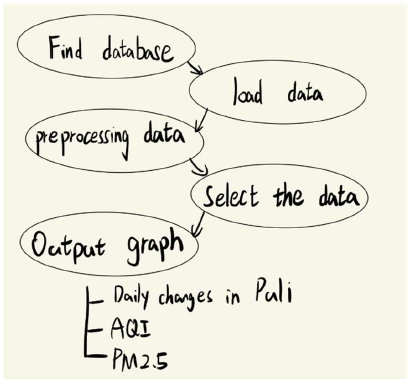 Find database
load data
preprocessing data
Select the data
Output graph
Daily changes in Puli
AQI
PM2.5